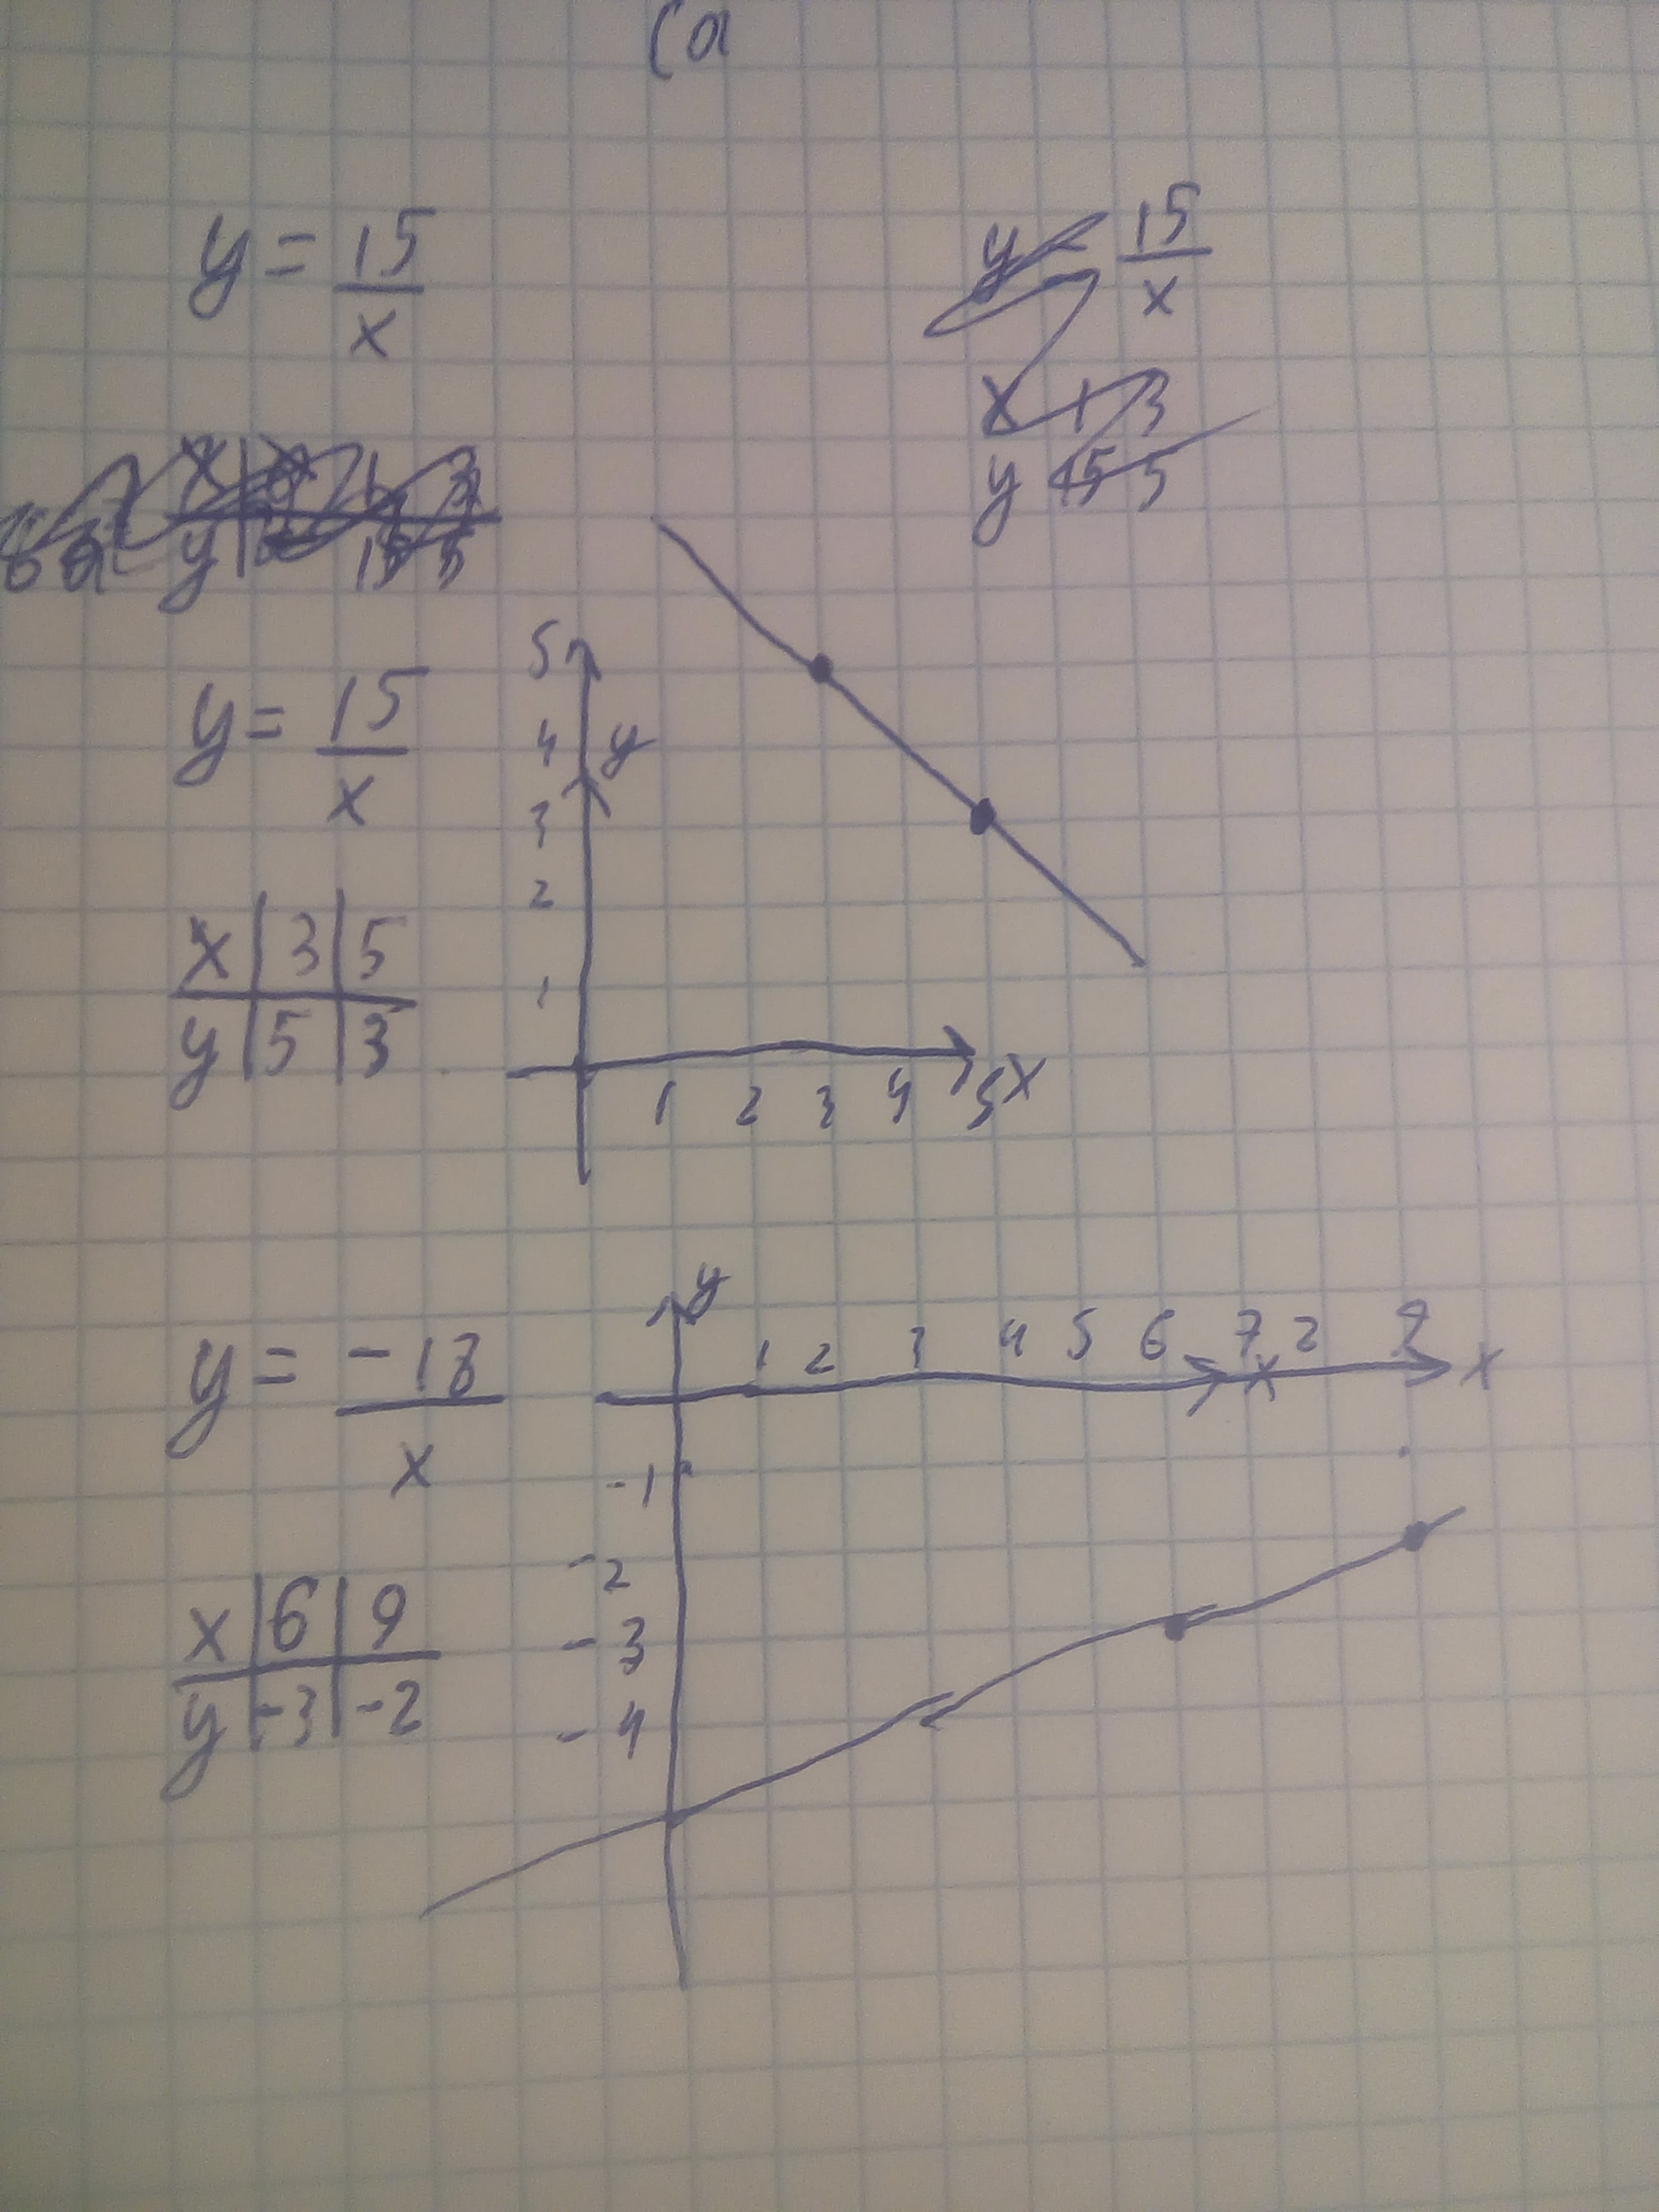 (a
y = 15
x
15
x
x 1 3
y 15 5
y = 15
x
x 3 5
y 5 3
5
4 y
3
2
1
1 2 3 4 5 x
y
y = -18
x
1 2 3 4 5 6 7 x 2 9 x
-1
-2
-3
-4
x 6 9
y -3 -2